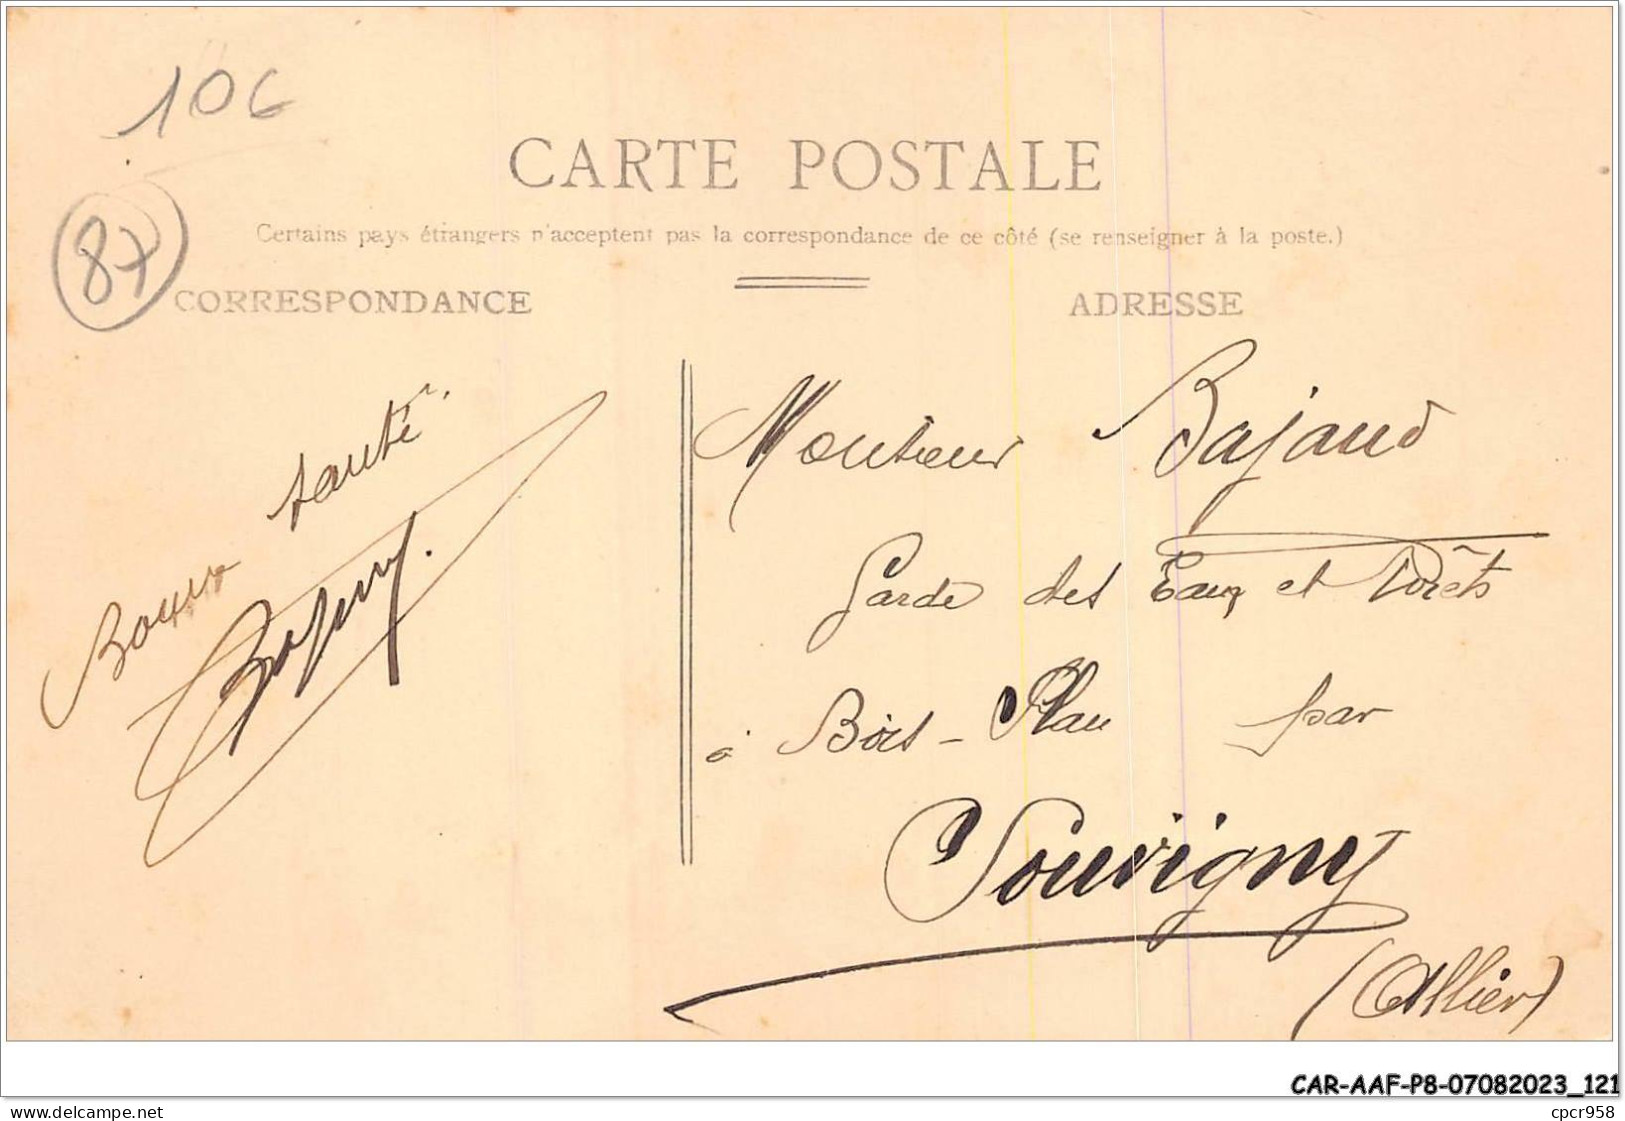 106
87
CARTE POSTALE
Certains pays étrangers n'acceptent pas la correspondance de ce côté (se renseigner à la poste.)
CORRESPONDANCE
ADRESSE
Bonne santé
Monsieur Bajaud
Garde des Eaux et Forêts
à Bois-Plan par
Souvigny
(Allier)
CAR-AAF-P8-07082023_121
cpcr958